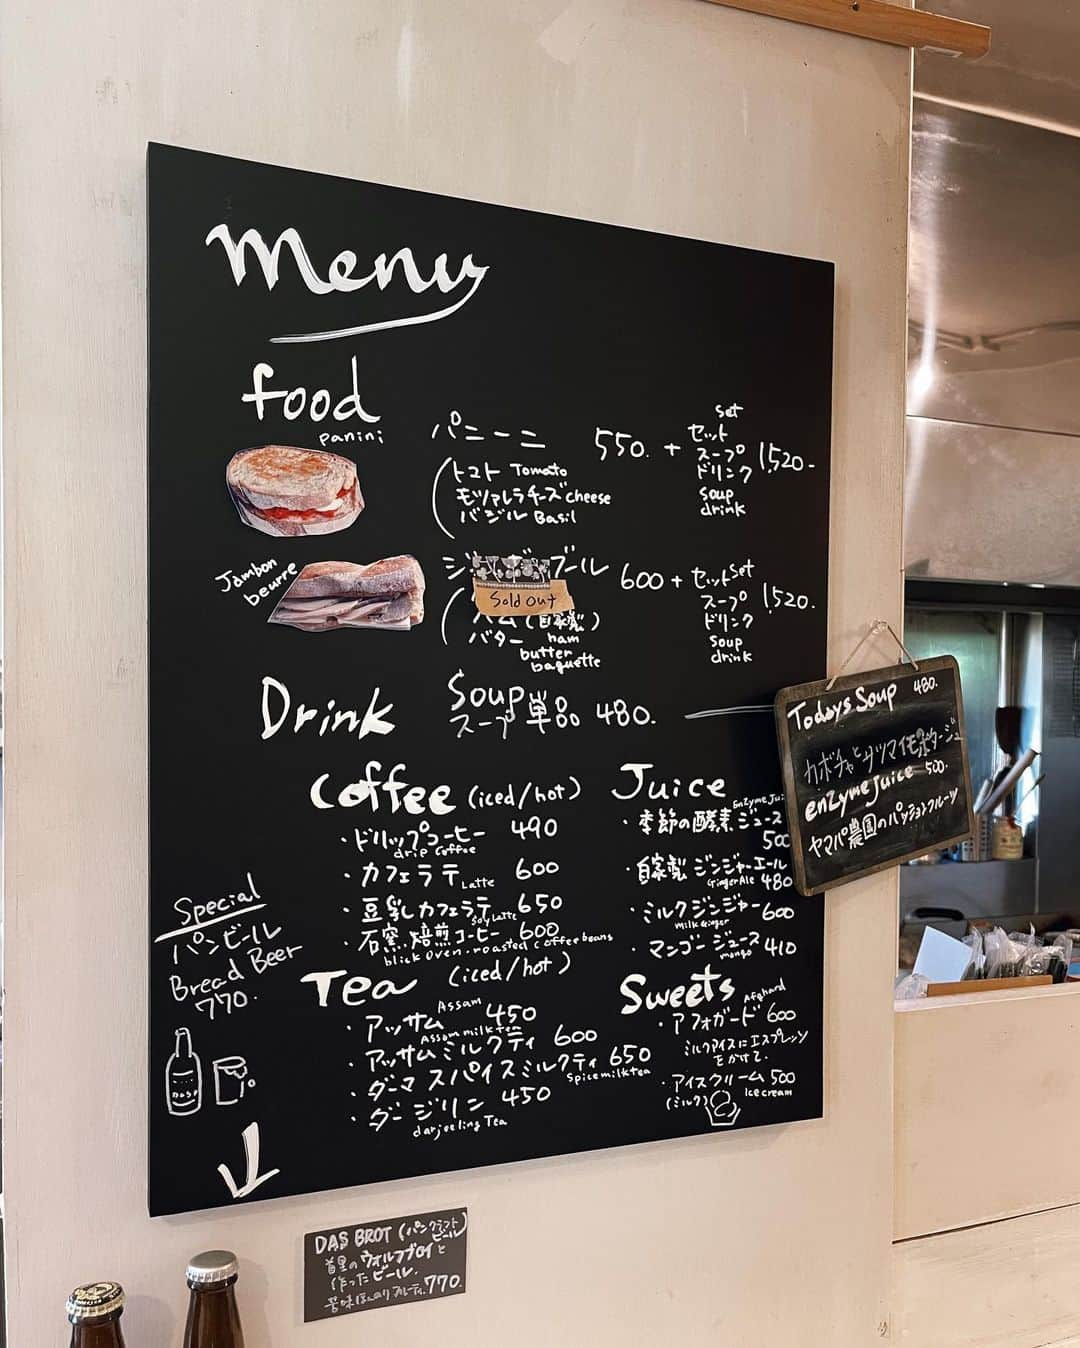 Menu
food
panini
パニーニ 550. + セット set
スープ
ドリンク
soup
drink
1,520-
(トマト Tomato
モツァレラチーズ cheese
バジル Basil
Jambon
beurre
Sold out
ブール 600 + セット set
スープ
ドリンク
soup
drink
1,520.
ハム(自家製)
ham
バター
butter
baguette
Soup
スープ 単品 480.
Drink
Coffee (iced/hot)
・ドリップコーヒー 490
drip coffee
・カフェラテ 600
Latte
・豆乳カフェラテ 650
Soy Latte
・石窯焙煎コーヒー 600
blick oven. roasted coffee beans
Tea (iced/hot)
・アッサム Assam 450
Assam milk tea
・アッサムミルクティ 600
・ダーマ スパイスミルクティ 650
Spice milk tea
・ダージリン 450
darjeeling Tea
Juice
Enzyme Jui
・季節の酵素ジュース
500
・自家製 ジンジャーエール
Ginger Ale 480
・ミルクジンジャー 600
Milk Ginger
・マンゴージュース 410
mango
Sweets
Afghard
・アフォガード 600
ミルクアイスにエスプレッソ
をかけて.
・アイスクリーム 500
(ミルク) Ice cream
Special
パンビール
Bread Beer
770.
Todays Soup 480.
カボチャとサツマイモポタージュ
enzyme Juice 500.
ヤマパ農園のパッションフルーツ
DAS BROT (パンクラフト
ビール)
首里のウォルフブロイと
作ったビール.
770.